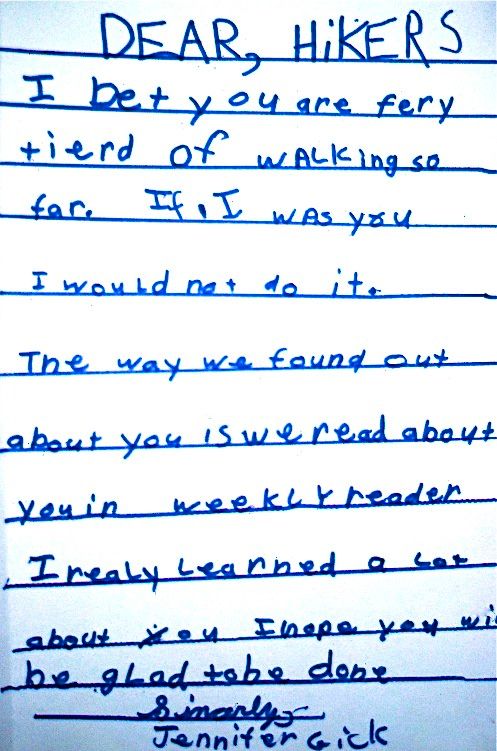 DEAR, HiKERS
I bet you are fery
tierd of WALKing so
far. If, I was you
I would not do it.
The way we found out
about you is we read about
you in weekLY reader
I realy Learned a Lot
about you I hope you wi
be gLad to be done
Sinarly,
Jennifer Gick